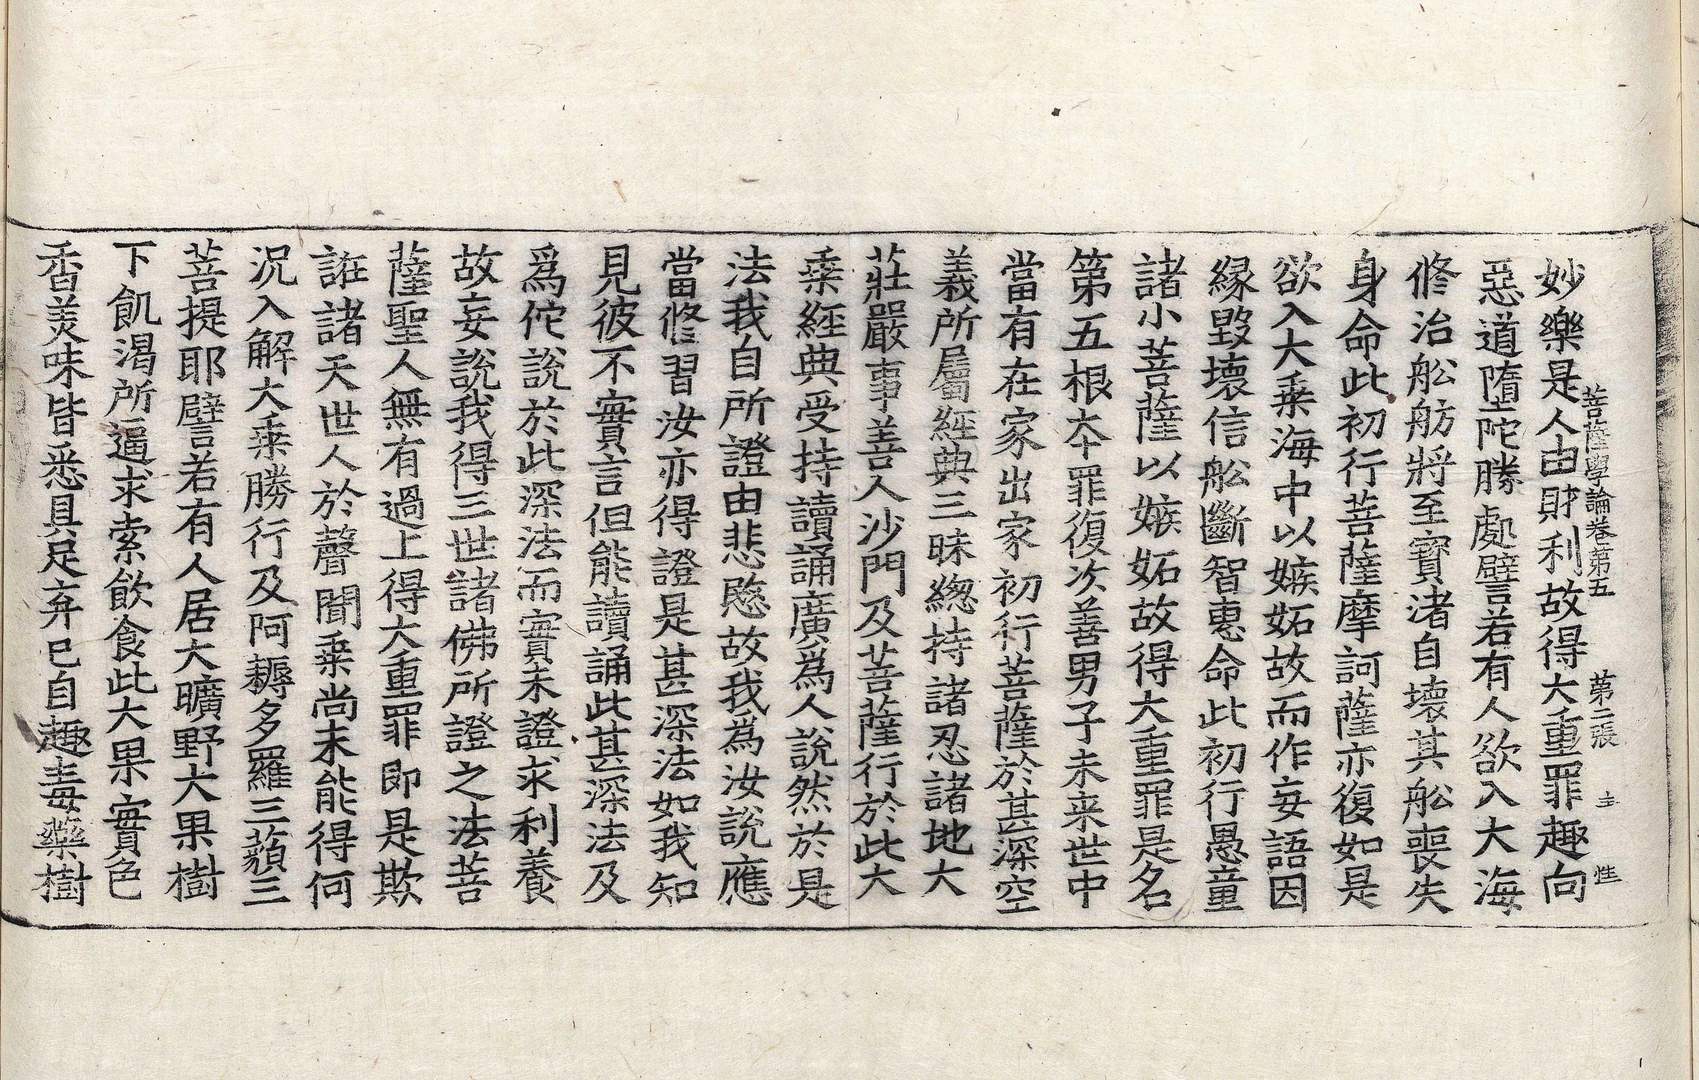 菩薩學論卷第五　第二張　主　性
妙樂是人由財利故得大重罪趣向
惡道墮陀勝處譬若有人欲入大海
修治舩舫將至寳渚自壞其舩喪失
身命此初行菩薩摩訶薩亦復如是
欲入大乗海中以嫉妬故而作妄語因
縁毀壞信舩斷智惠命此初行愚童
諸小菩薩以嫉妬故得大重罪是名
第五根夲罪復次善男子未来世中
當有在家出家初行菩薩於甚深空
義所屬經典三昧緫持諸忍諸地大
莊嚴事善人沙門及菩薩行於此大
乗經典受持讀誦廣爲人說然於是
法我自所證由悲愍故我爲汝說應
當修習汝亦得證是甚深法如我知
見彼不實言但能讀誦此甚深法及
爲佗說於此深法而實未證求利養
故妄說我得三世諸佛所證之法菩
薩聖人無有過上得大重罪即是欺
誑諸天世人於聲聞乗尚未能得何
況入解大乗勝行及阿耨多羅三藐三
菩提耶譬若有人居大曠野大果樹
下飢渴所逼求索飲食此大果實色
香美味皆悉具足弃已自趣毒藥樹